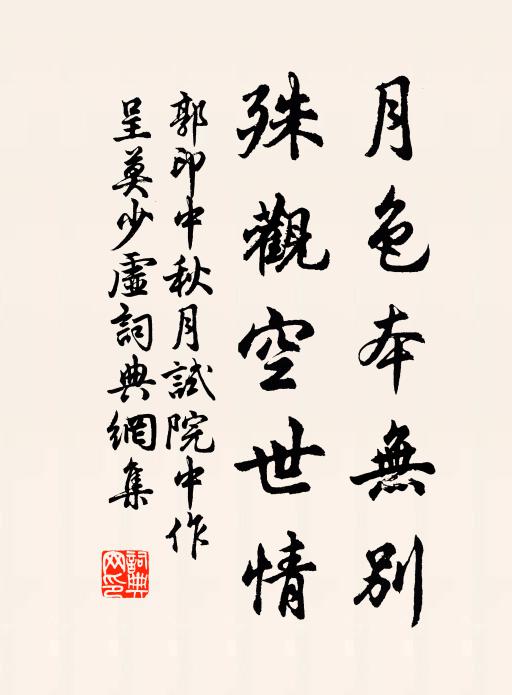 月色本無別
殊觀空世情
郭印中秋月試院中作
呈莫少虛詞典網集
詞典網印